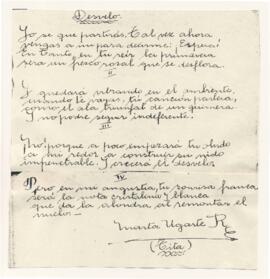 Desvelo.
Yo se que partirás. Tal vez ahora
vengas a mi para decirme: Espera!
En tanto, en tu reir la primavera
será un fresco rosal que se desflora.
II
Y quedará vibrando en el
cuando te vayas, tu canción
como el ala triunfal de una quimera
Y no podré seguir indeferente.
III
porque a poco empezará tu olvido
a mi redor, a construir su nido
impenetrable. Y crecerá el desvelo
IV
Pero en mi angustia, tu sonrisa franca
será la nota cristalina y blanca
que da la alondra al remontar el
vuelo.
Marta Ugarte R
(Tita)